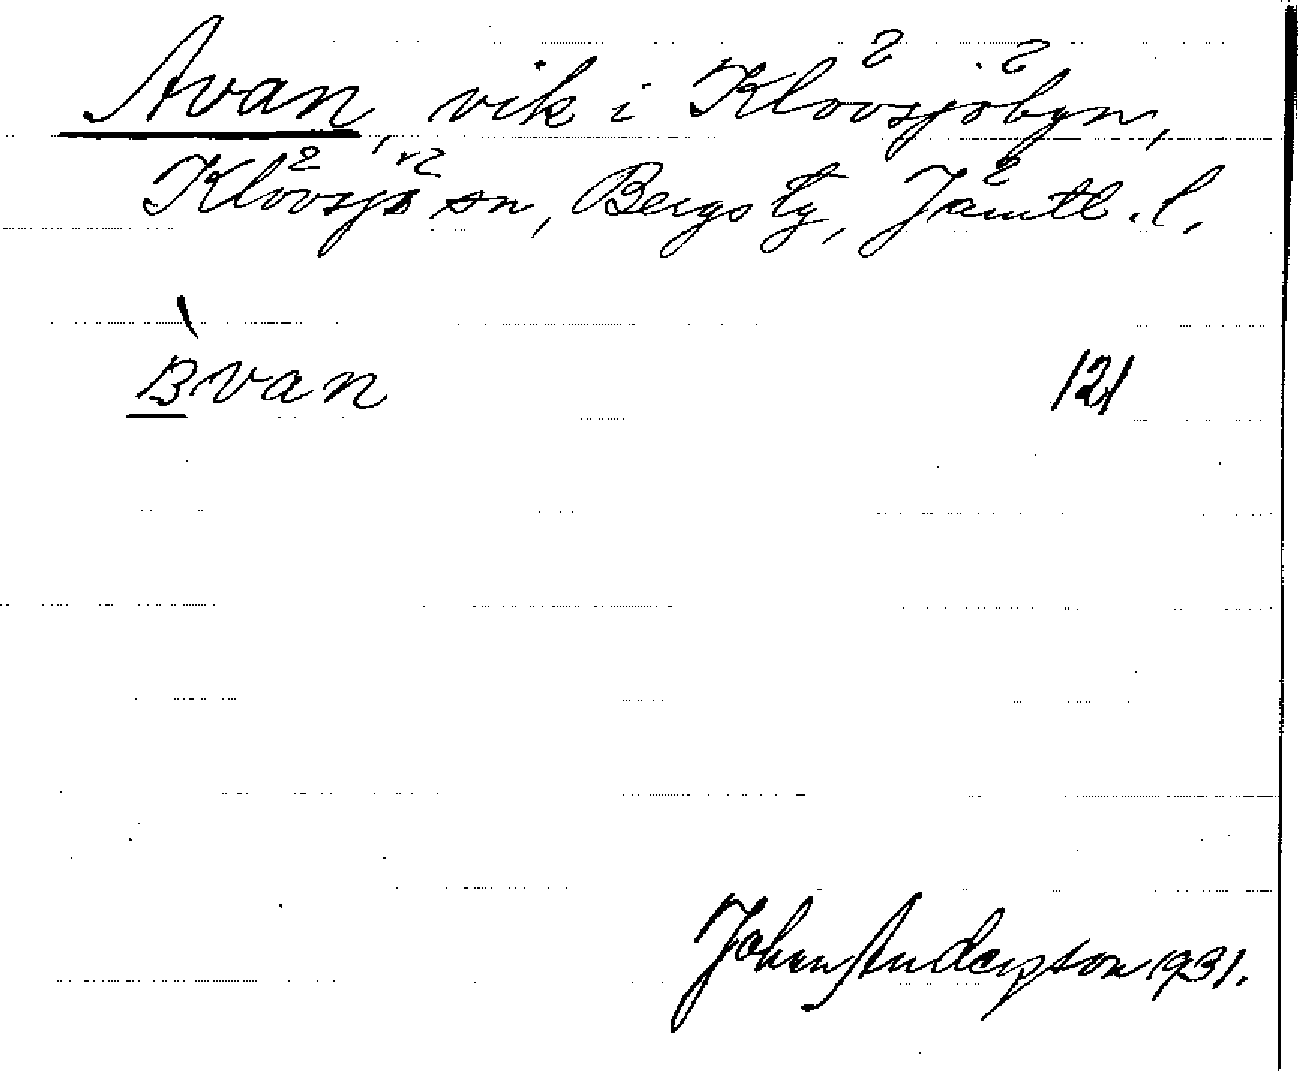 Avan, vik i Klövsjöbyn,
Klövsjö sn, Bergs tg, Jämtl. l.
Bvan 121
Johan Anderson 1931.